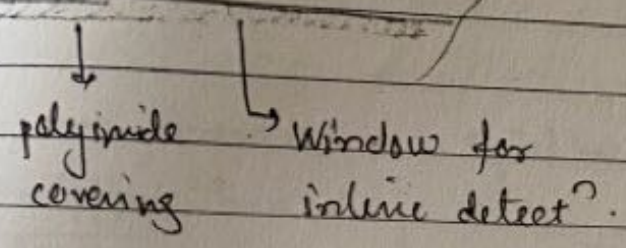 polyimide
covering
Window for
inline detectⁿ.